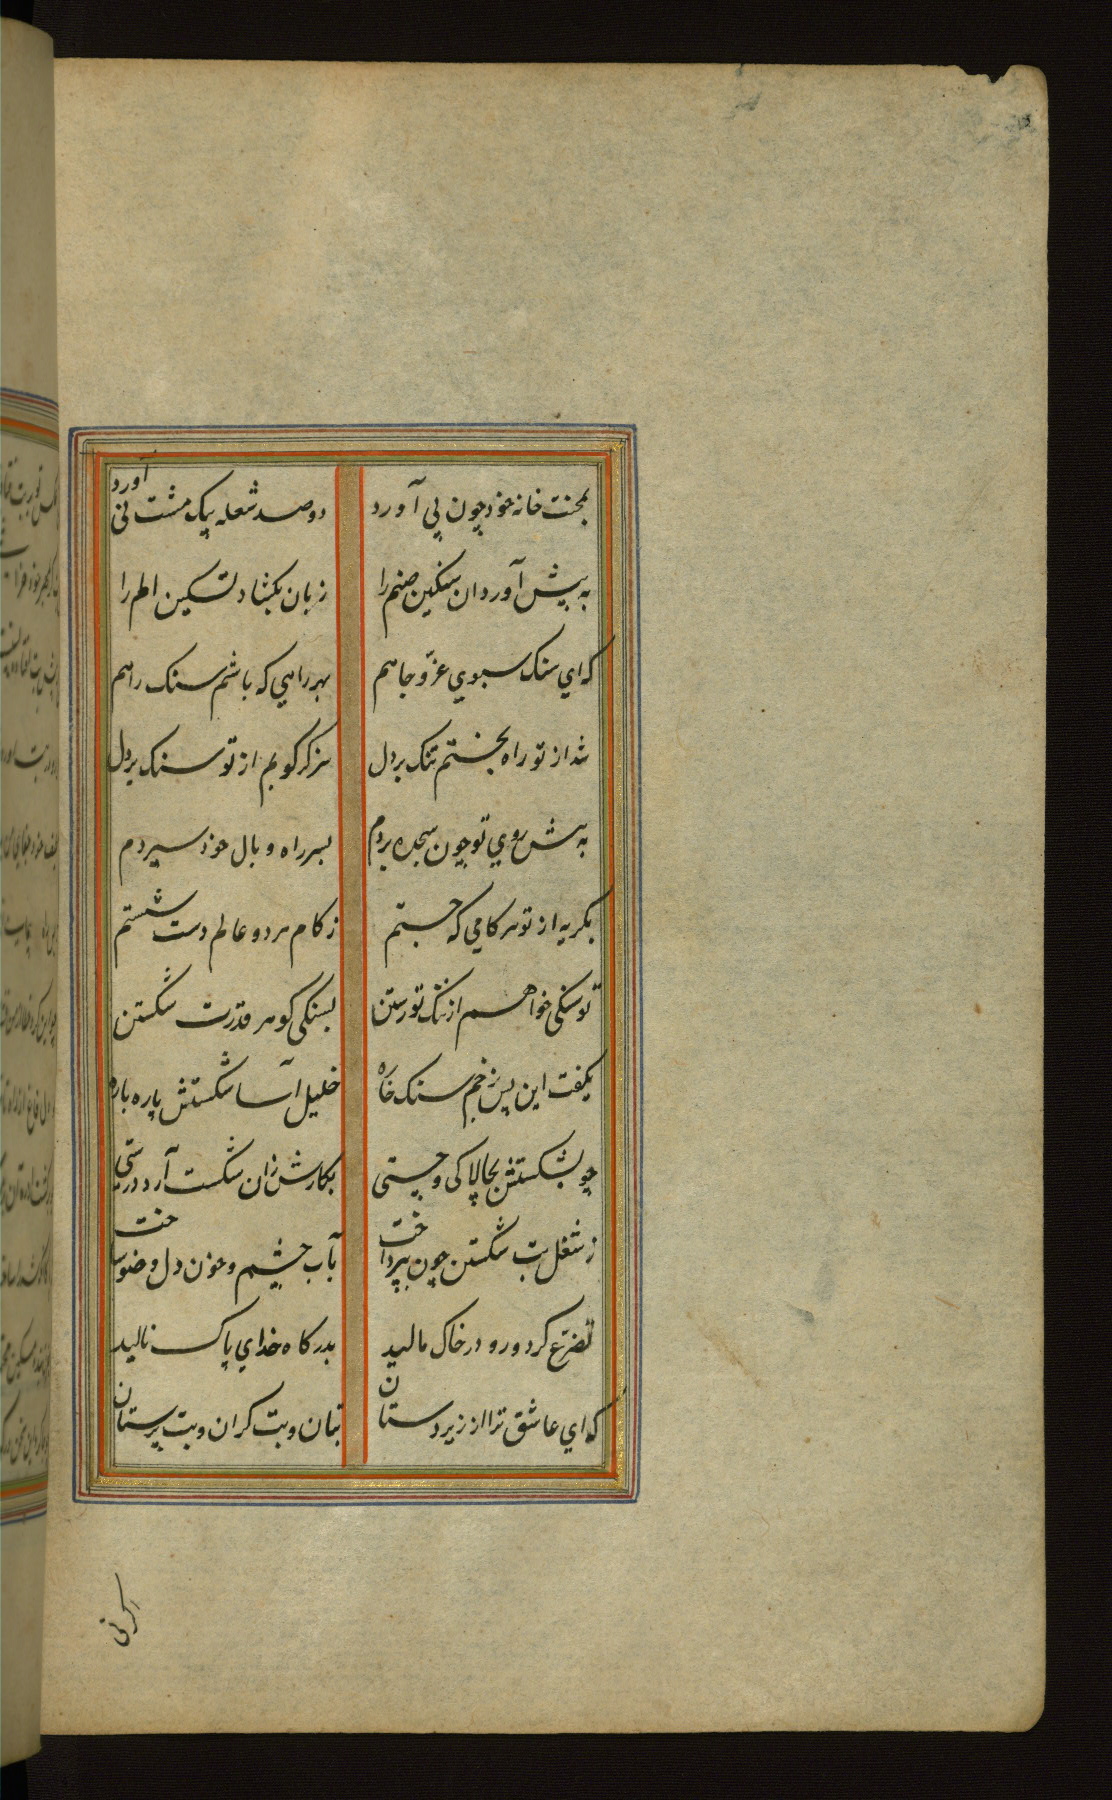 بمحنت خانه خود چون پی آورد دو صد شعله بیک مشت نی آورد
به پیش آورد ان سنکین صنم را زبان بکشاد تسکین الم را
که ای سنک سبوی عز و جاهم بهر راهی که باشم سنک راهم
شد از تو راه بختم تنک بر دل سزد کر کوبم از تو سنک بر دل
به پیش روی تو چون سجده بردم بسر راه و بال خود سپردم
بکریه از تو هر کامی که جستم ز کام هر دو عالم دست شستم
تو سنکی خواهم از ننک تو رستن بسنکی کوهر قدرت شکستن
بکفت این پس بزخم سنک خاره خلیل آسا شکستش پاره باره
چو بشکستش بجالاکی و چستی بکارش زان شکست آرد درستی
ز شغل بت شکستن چون بپرداخت بآب چشم و خون دل وضو ساخت
تضرع کرد و رو در خاک مالید بدرکاه خدای پاک نالید
که ای عاشق ترا از زیر دستان بتان و بت کران و بت پرستان
اکرنی